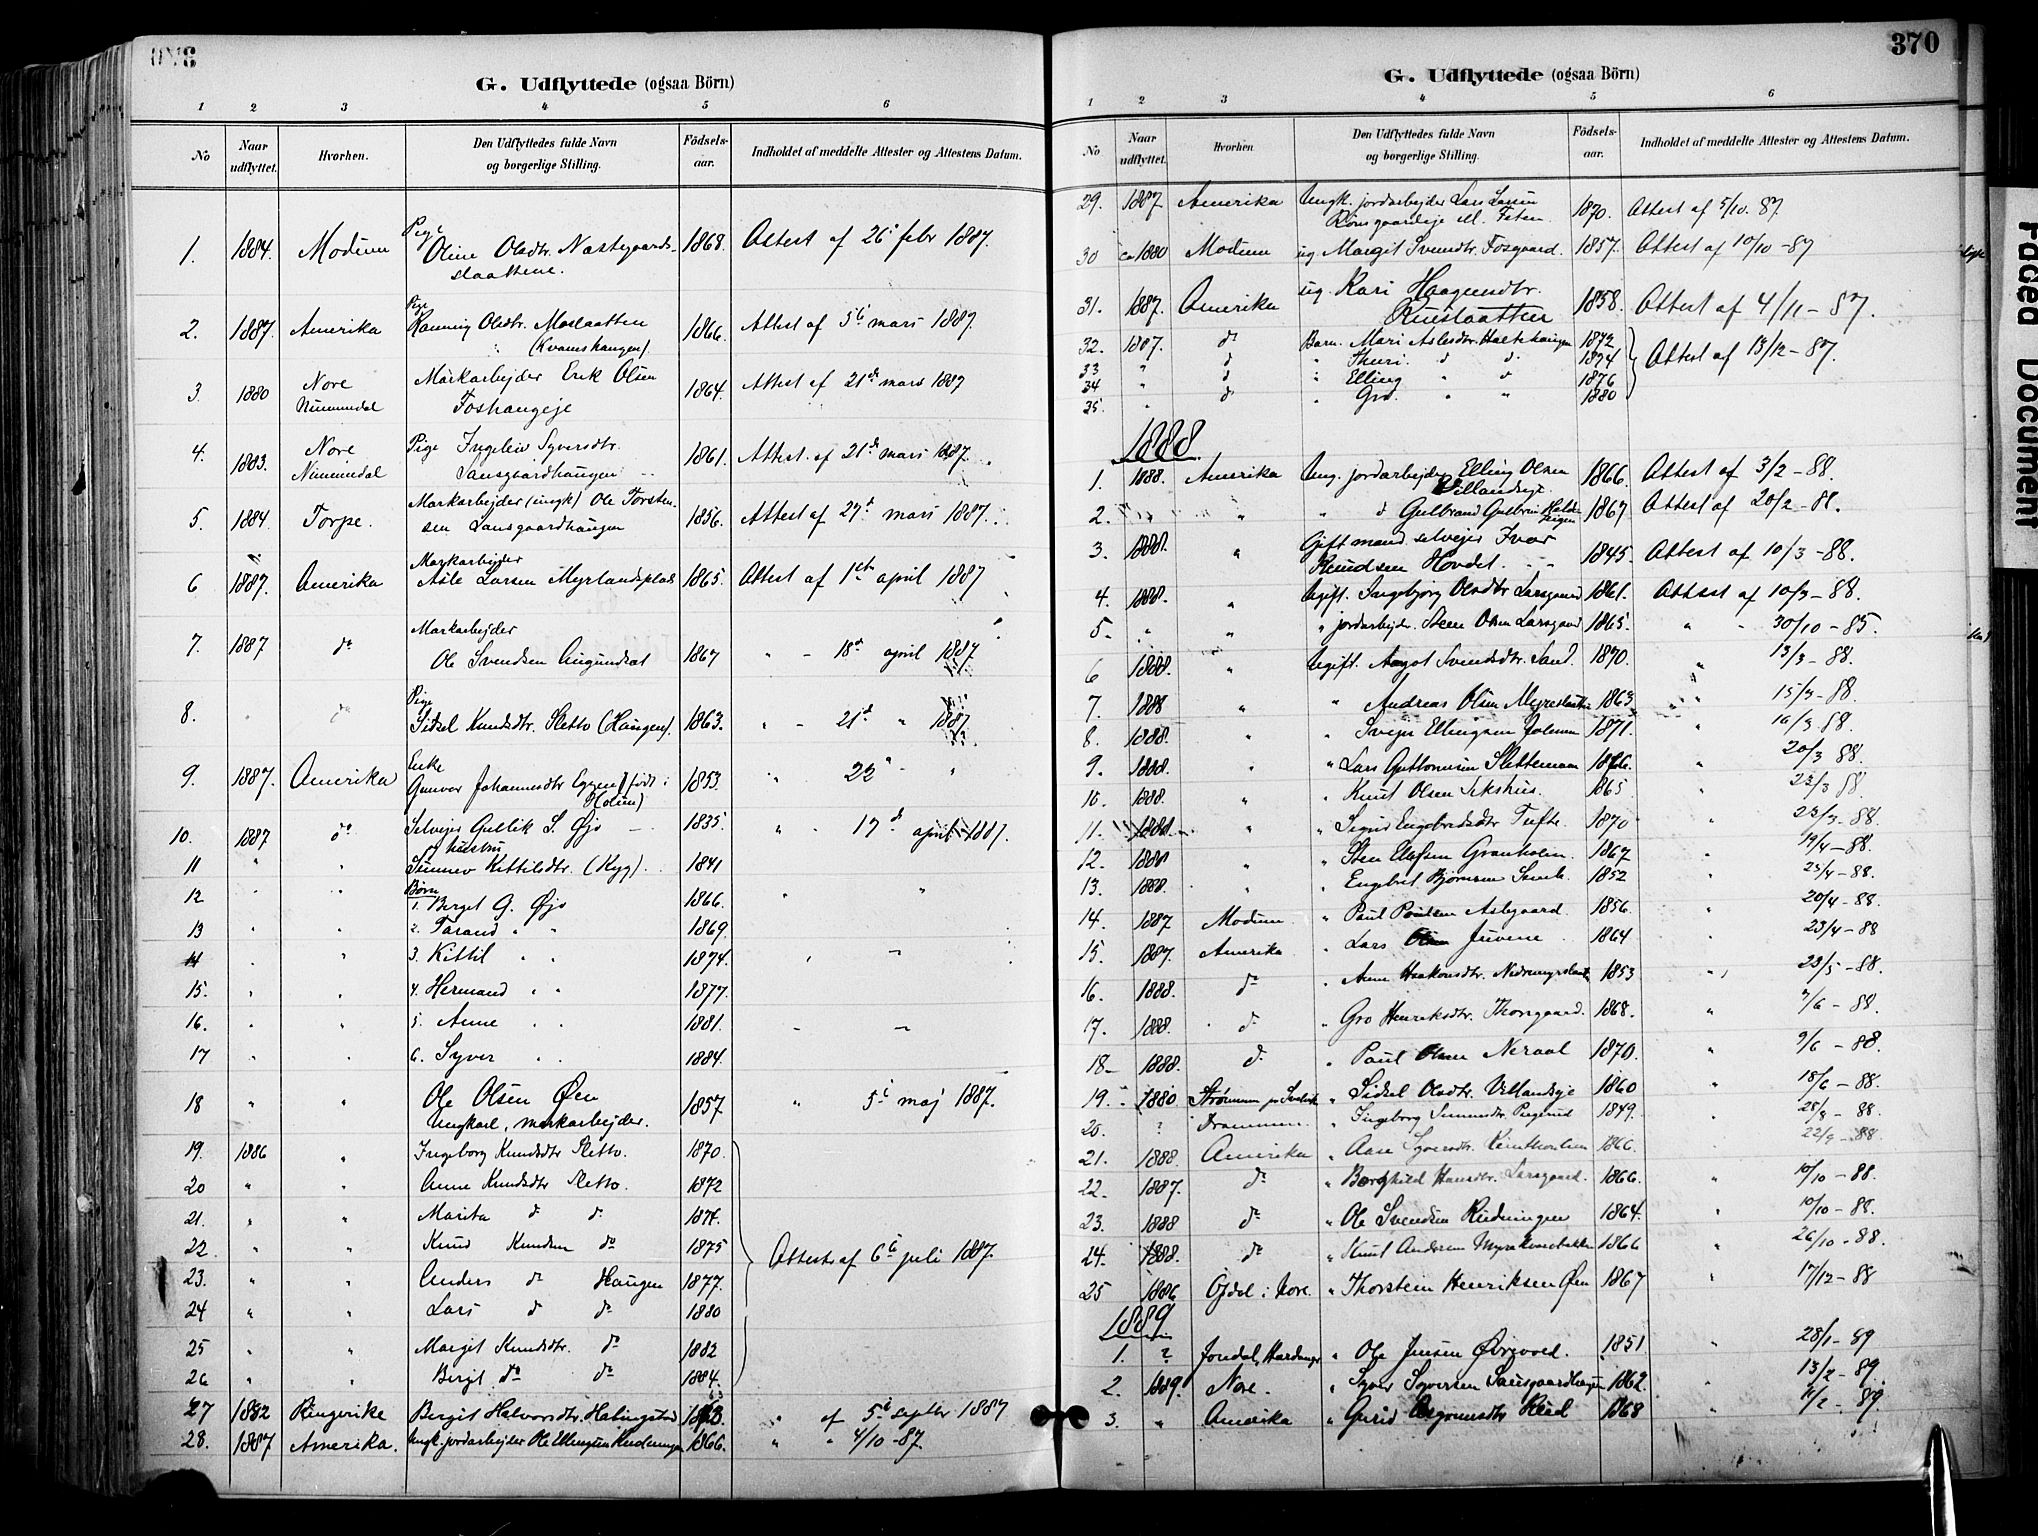 G. Udflyttede (ogsaa Börn)
1 2 3 4 5 6
No Naar udflyttet. Hvorhen. Den Udflyttedes fulde Navn og borgerlige Stilling. Födsels-aar. Indholdet af meddelte Attester og Attestens Datum.
Pige
1. 1884. Modum Oline Olsdtr. Næstegaards- 1868. Attest af 26 febr 1887.
slaattene.
Pige
2. 1887. Amerika Ranning Olsdtr. Moslaatten 1866. Attest af 5te mars 1887.
(Kvamshaugen).
3. 1880 Nore Markarbejder Erik Olsen 1864. Attest af 21de mars 1887
Nummedal Foshaugeje
4. 1883. Nore Pige Ingeleiv Syversdtr. 1861. Attest af 21de mars 1887.
Nummedal Sansgaardhaugen
5. 1884. Torpe. Markarbejder (ungk) Ole Torsten- 1856. Attest af 27d mars 1887.
sen Lansgaardhaugen
Markarbejder
6 1887. Amerika Asle Larsen Myrlandsplads 1865. Attest af 1ste april 1887
Markarbejder
7. 1887 do Ole Svendsen Augundsat 1867 " - 18d april 1887
Pige
8. " do Sidsel Knudsdtr. Sletto (Haugen). 1863. " - 21d " 1887
Enke
9. 1887. Amerika Gunvor Johannesdtr Eggen) født i 1853. " 22 " "
Holum)
10. 1887 do Selvejer Gullik S. Øjo 1835. " - 17d april 1887.
hustru
11 " " Sünnev Kittilsdtr. (Ryg). 1841
Børn
12 " " 1. Berget G. Øjo 1866. " "
13 " " 2. Tarand " " 1869.
14 " " 3. Kittil " " 1874. " "
15. " " 4. Hermand " " 1877.
16. " " 5. Anne " " 1881.
17 " " 6. Syver " " 1884.
18 " " Ole Olsen Øen 1857 " 5te maj 1887.
Ungkarl, markarbejder.
19. 1886 " Ingeborg Knudsdtr Sletto. 1870.
20 " " Anne Knudsdtr Sletto. 1872
21. " " Marita do do 1874.
22. " " Knud Knudsen do 1875 Attest af 6te juli 1887.
23. " " Anders do Haugen 1877.
24 " " Lars do do 1880
25 " " Margit Knudsdtr. do 1882
26 " " Birgit do do 1884.
27 1882 Ringerike Bergit Halvorsdtr. Halingstad 1863. " af 5te septbr 1887
28. 1887 Amerika. Ungk. jordarbejder Ole Ellingsen Rudningen 1866. " " 4/10-87.
370
G. Udflyttede (ogsaa Börn)
1 2 3 4 5 6
No Naar udflyttet. Hvorhen Den Udflyttedes fulde Navn og borgerlige Stilling. Födsels-aar. Indholdet af meddelte Attester og Attestens Datum.
29. 1887. Amerika Ungk. jordarbejder Lars Larsen 1870. Attest af 5/10. 87.
30 ca 1880 Modum ug. Margit Svendtr. Fosgaard. 1857. Attest af 10/10-87
31. 1887. Amerika ug. Kari Haagensdtr. 1858. Attest af 4/11-87.
Ruslaatten
32. 1887. do Barn. Mari Aslesdtr. Haltehaugen 1872 Attest af 13/12-87.
33 " d " Thuri. d d 1874
34 " d " Elling " d 1876
35. " d " Gro. " " 1880
1888.
1. 1888. Amerika Ung. jordarbejder Elling Olsen 1866. Attest af 3/2-88.
Villandseje.
2. " " " d Gulbrand Gulbrandsen 1867 Attest af 20/2-88.
3. 1888. " Gift mand selvejer Ivar 1845. Attest af 10/3-88.
Knudsen Hovdet.
4. 1888. " Ugift. Ingebjørg Olsdtr Larsgaard 1861. Attest af 10/3-88.
5. " " " jordarbejder. Sten Olsen Larsgaard 1865. " " 30/10-85.
6 1888. " Ugift. Aagot Svendsdtr. Sand. 1870. " 13/3-88.
7. 1888 " " Andreas Olsen Myreslaatte 1863 " " 15/3-88
8. 1888. " " Svejn Ellingsen Jolemen 1871. " 16/3 88.
9. 1888. " " Lars Guttormsen Slettemoen 1866. " 20/3 88.
10. 1888. " " Knut Olsen Sekshus. 1865 22/3 88.
11. 1888. " " Sigrid Engebretsdtr Tufte. 1870 23/3-88.
12. 1888 " " Sten Olafsen Granholm. 1867 " 19/4-88.
13. 1888. " " Engebret Bjørnsen 1852 " 25/4-88.
14. 1887 Modum. " Paul Poulsen Aslegaard. 1856. " 20/4-88.
15. 1887. Amerika. " Lars Olsen Juvene 1864 " 23/4-88
16. 1888. do " Anne Haakonsdtr. Nedremyrslaat 1853 " 23/5-88.
17. 1888. do " Gro Henriksdtr. Thorsgaard. 1868. " 7/6-88.
18 1888. do " Paul Olsen Neraal 1870. " 9/6-88.
19. 1880 Strømmen " Sidsel Olsdtr. Villandseje 1860 " 18/6-88.
20. ? Drammen. " Ingeborg 1849. " 28/8-88.
21. 1888. Amerika " Aase Syversdtr. 1866. 22/9-88.
22. 1887. do " Borghild Hansdtr. Larsgaard. 1866. " 10/10-88.
23. 1888 do " Ole Svendsen Rudningen 1864. " 10/10-88.
24. 1888. do " Knut Andersen 1866 26/10-88.
25 1886 Opdal i Nore. " Thorstein Henriksen Øen 1867 " 17/12-88
1889
1. ? Jondal, Hardanger " Ole Jensen 1851 " 28/1-89
2. 1889. Nore. " Syver Syversen Sansgaardhaugen 1862. " 13/2-89.
3. " Amerika " Gurid Asgrimsdtr Rud 1868 " 2-89.
Faded Document